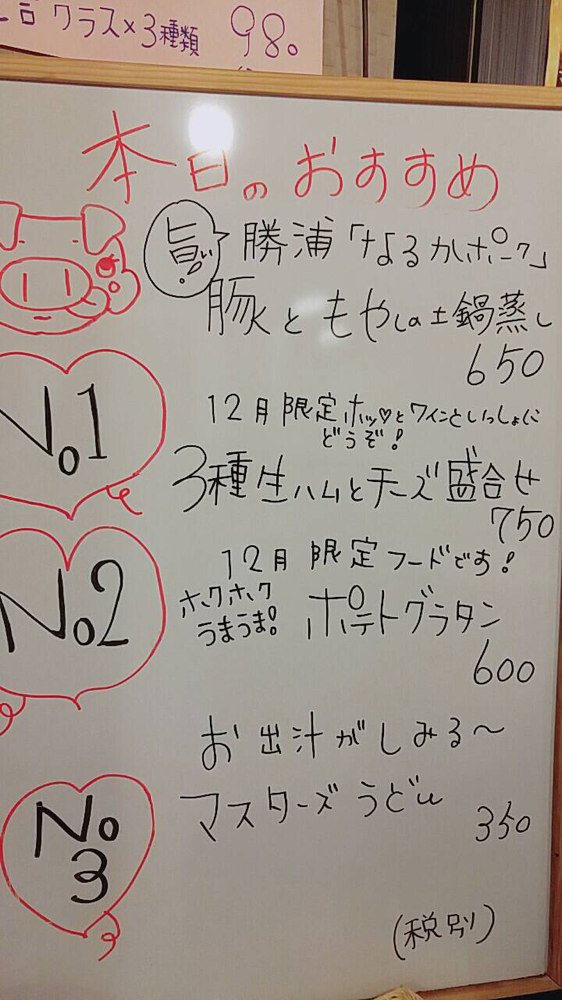 グラス×3種類 980
本日のおすすめ
旨い! 勝浦「なるかポーク」
豚ともやしの土鍋蒸し
650
No1
12月限定ホッ♡とワインといっしょに
どうぞ!
3種生ハムとチーズ盛合せ
750
No2
12月限定フードです!
ホクホク
うまうま! ポテトグラタン
600
お出汁がしみる～
No3
マスターズうどん
350
(税別)